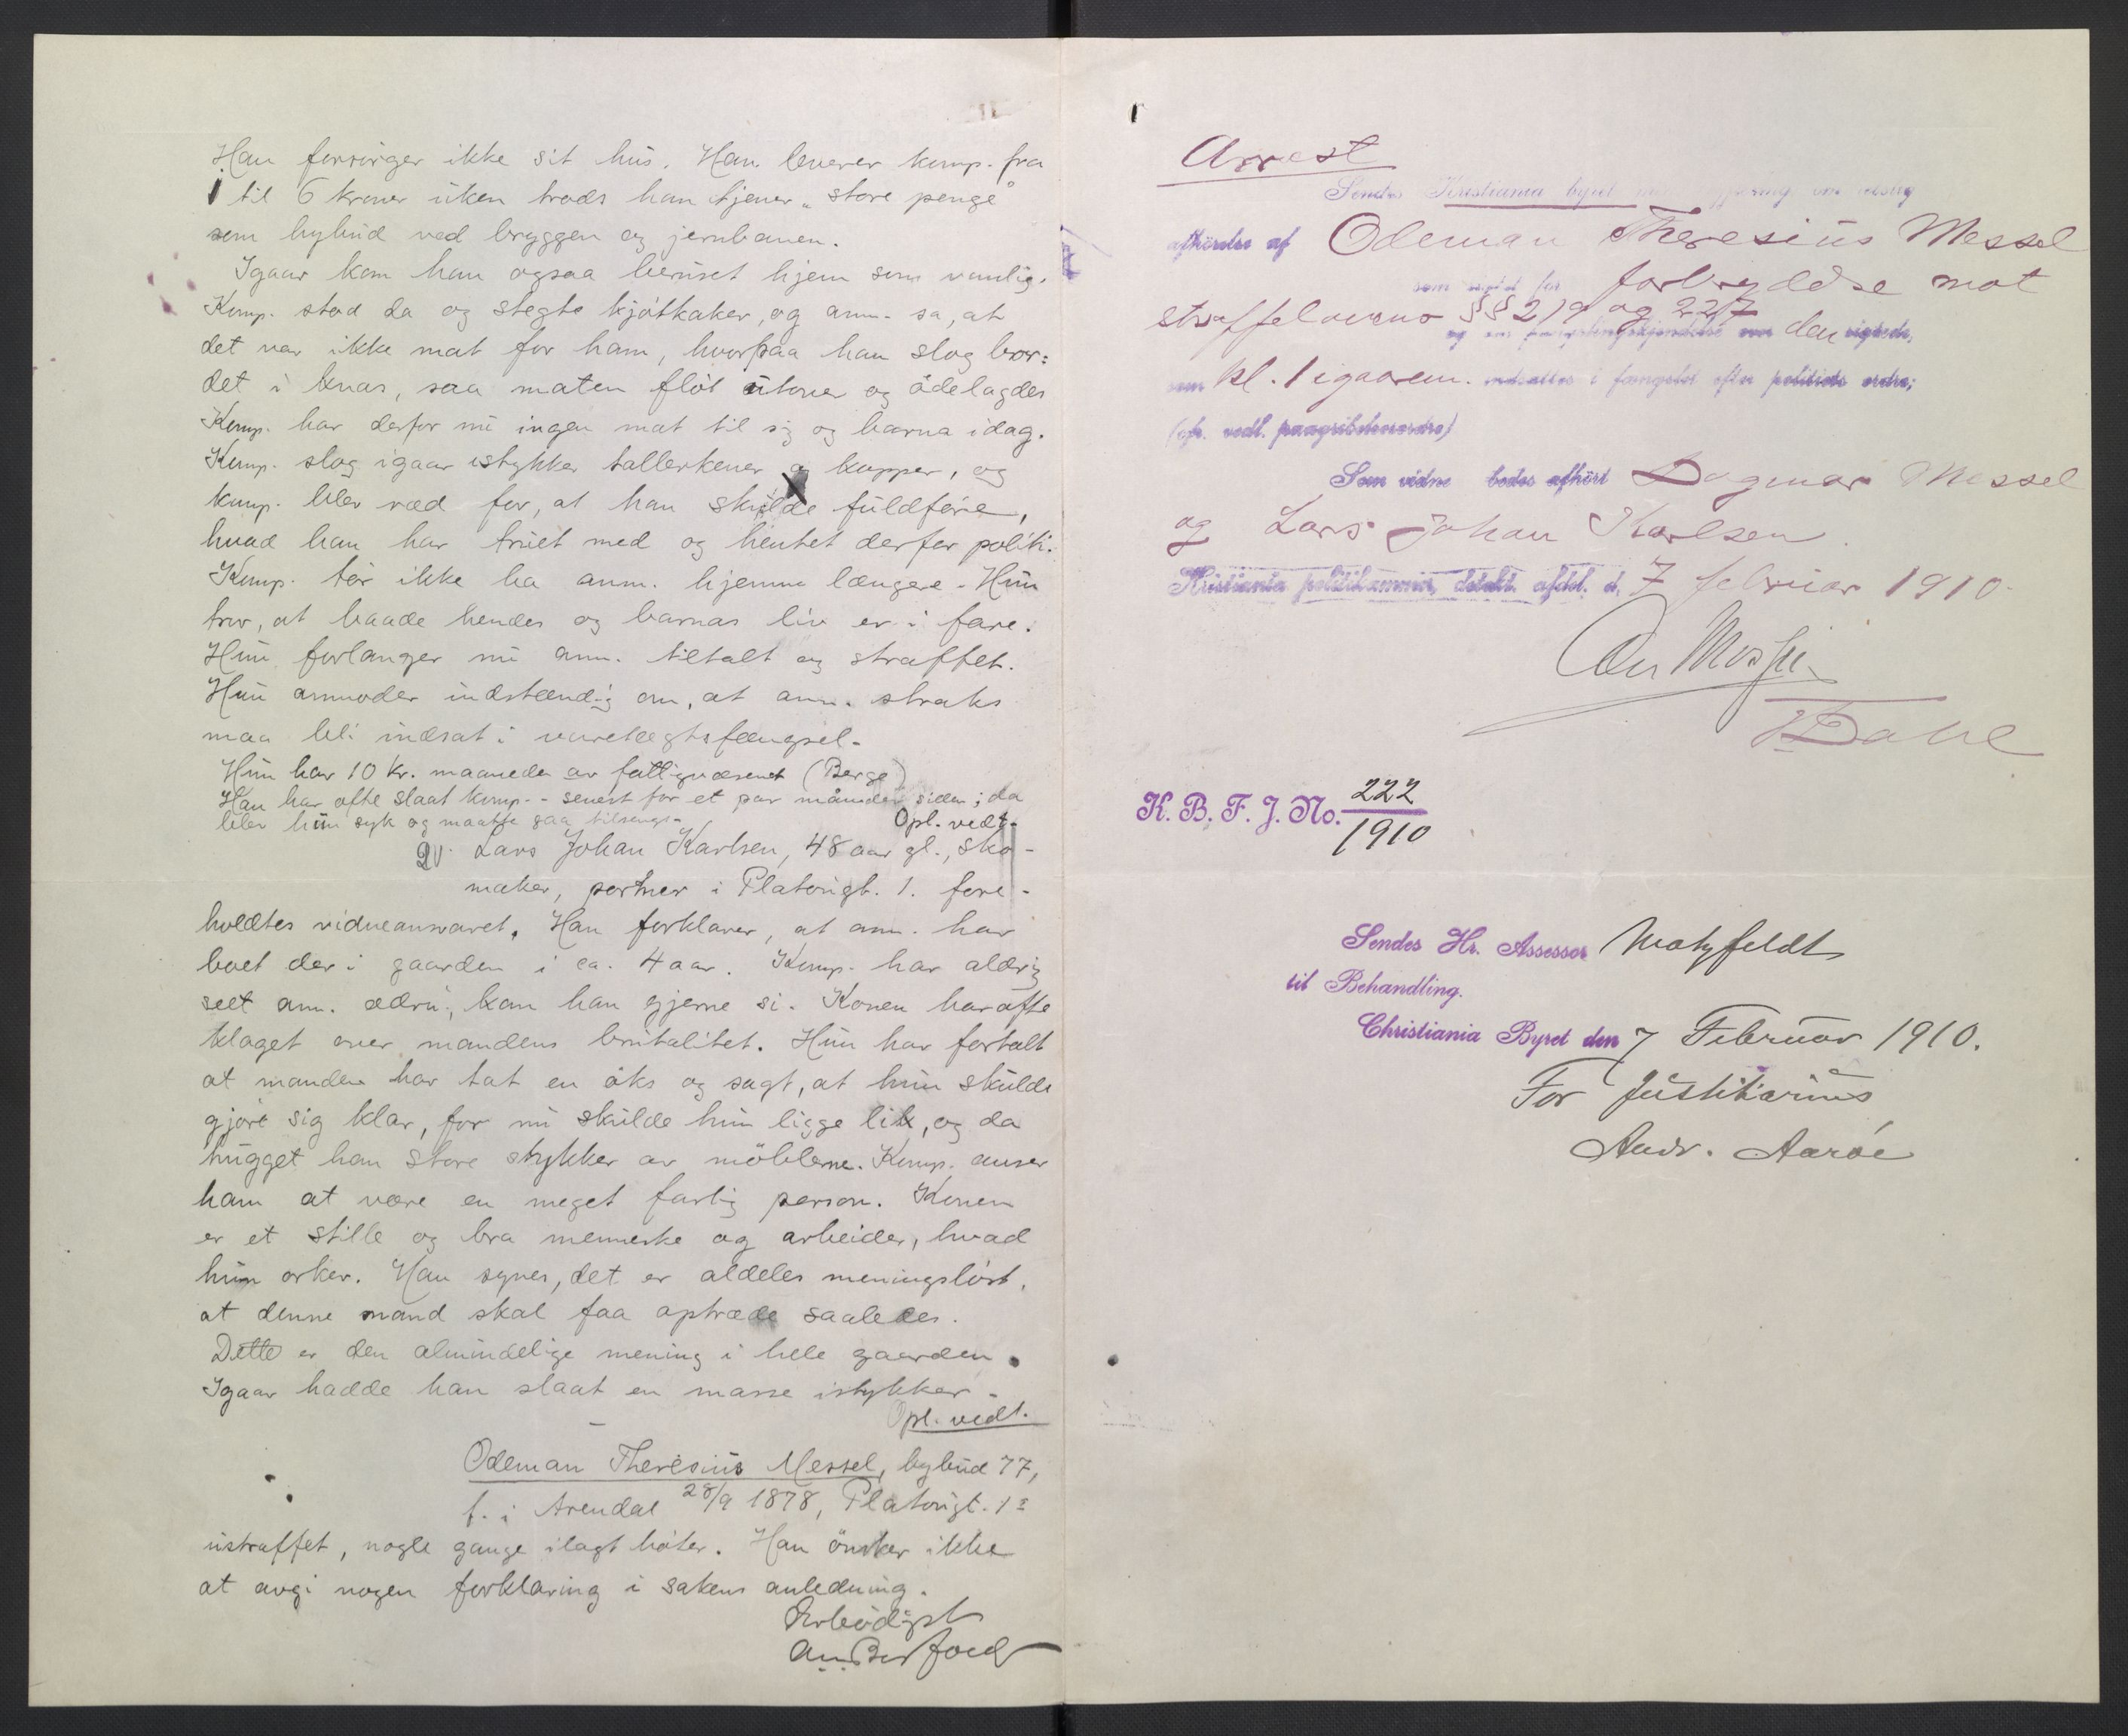 Han forsörger ikke sit hus. Han leverer komp. fra
1 til 6 kroner uken trods han tjener „store penge"
som bybud ved bryggen og jernbanen.
Igaar kom han ogsaa beruset hjem som vanlig.
Komp. stod da og stegte kjötkaker, og anm. sa, at
det var ikke mat for ham, hvorpaa han slog bor=
det i knas, saa maten flöt utover og ödelagdes
Komp. har derfor nu ingen mat til sig og barna idag.
Komp. slog igaar istykker tallerkener og kopper, og
komp. blev ræd for, at han skulde fuldföre,
hvad han har truet med og hentet derfor politi.
Komp. tör ikke ha anm. hjemme længere. Hun
tror, at baade hendes og barnas liv er i fare.
Hun forlanger nu anm. tiltalt og straffet.
Hun anmoder indstændig om, at anm. straks
maa bli indsat i varetægtsfængsel.
Hun har 10 kr. maaneden av fattigvæsenet (Berge)
Han har ofte slaat komp. - senest for et par måneder siden; da
blev hun syk og maatte gaa tilsengs.
Opl. vedt.
2v. Lars Johan Karlsen, 48 aar gl., sko-
maker, portner i Platousgt. 1. fore-
holdtes vidneansvaret. Han forklarer, at anm. har
boet der i gaarden i ca. 4 aar. Komp. har aldrig
seet anm. ædru, kan han gjerne si. Konen har ofte
klaget over mandens brutalitet. Hun har fortalt
at manden har tat en öks og sagt, at hun skulde
gjöre sig klar, for nu skulde hun ligge lik, og da
hugget han store stykker av möblerne. Komp. anser
ham at være en meget farlig person. Konen
er et stille og bra menneske og arbeider, hvad
hun orker. Han synes, det er aldeles meningslöst,
at denne mand skal faa optræde saaledes.
Dette er den almindelige mening i hele gaarden.
Igaar hadde han slaat en masse istykker.
Opl. vedt.
Odeman Theresius Messel, bybud 77,
f. i Arendal 28/9 1878, Platousgt. 1
ustraffet, nogle gange ilagt böter. Han önsker ikke
at avgi nogen forklaring i sakens anledning.
Ærbödigst
Arrest
Sendes Kristiania byret
afhörelse af Odeman Theresius Messel
som sigtet for forbrydelse mot
straffelovens §§ 219 og 227
og om fængslingskjendelse over den sigtede,
som kl. 1 igaarem. indsattes i fængslet efter politiets ordre;
(cfr. vedl. paagribelsesordre)
Som vidne bedes afhört Dagmar Messel
og Lars Johan Karlsen.
Kristiania politikammer, detekt. afdel. d. 7 februar 1910.
K. B. F. J. No. 222
1910
Sendes Hr. Assessor Motzfeldt
til Behandling.
Christiania Byret den 7 Februar 1910.
For Justitiarius
Andr. Aaröe